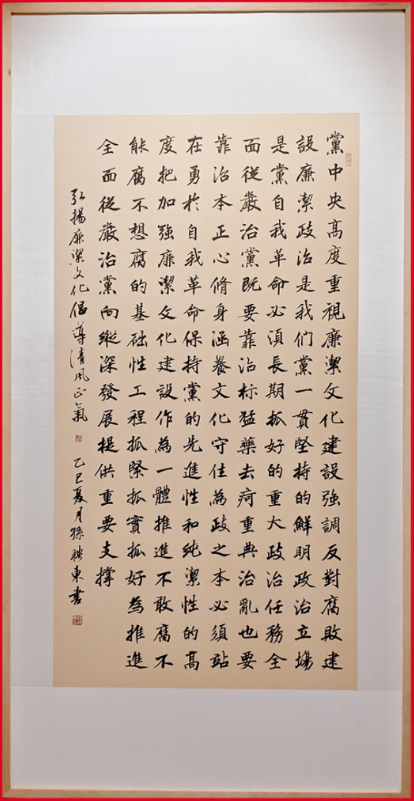 黨中央高度重視廉潔文化建設強調反對腐敗建
設廉潔政治是我们黨一貫堅持的鮮明政治立場
是黨自我革命必須長期抓好的重大政治任務全
面從嚴治黨既要靠治标猛藥去疴重典治亂也要
靠治本正心脩身涵養文化守住為政之本必須站
在勇於自我革命保持黨的先進性和純潔性的高
度把加強廉潔文化建設作為一體推進不敢腐不
能腐不想腐的基础性工程抓緊抓實抓好為推進
全面從嚴治黨向縱深發展提供重要支撐
弘揚廉潔文化倡導清風正氣
乙巳夏月孫聘東書